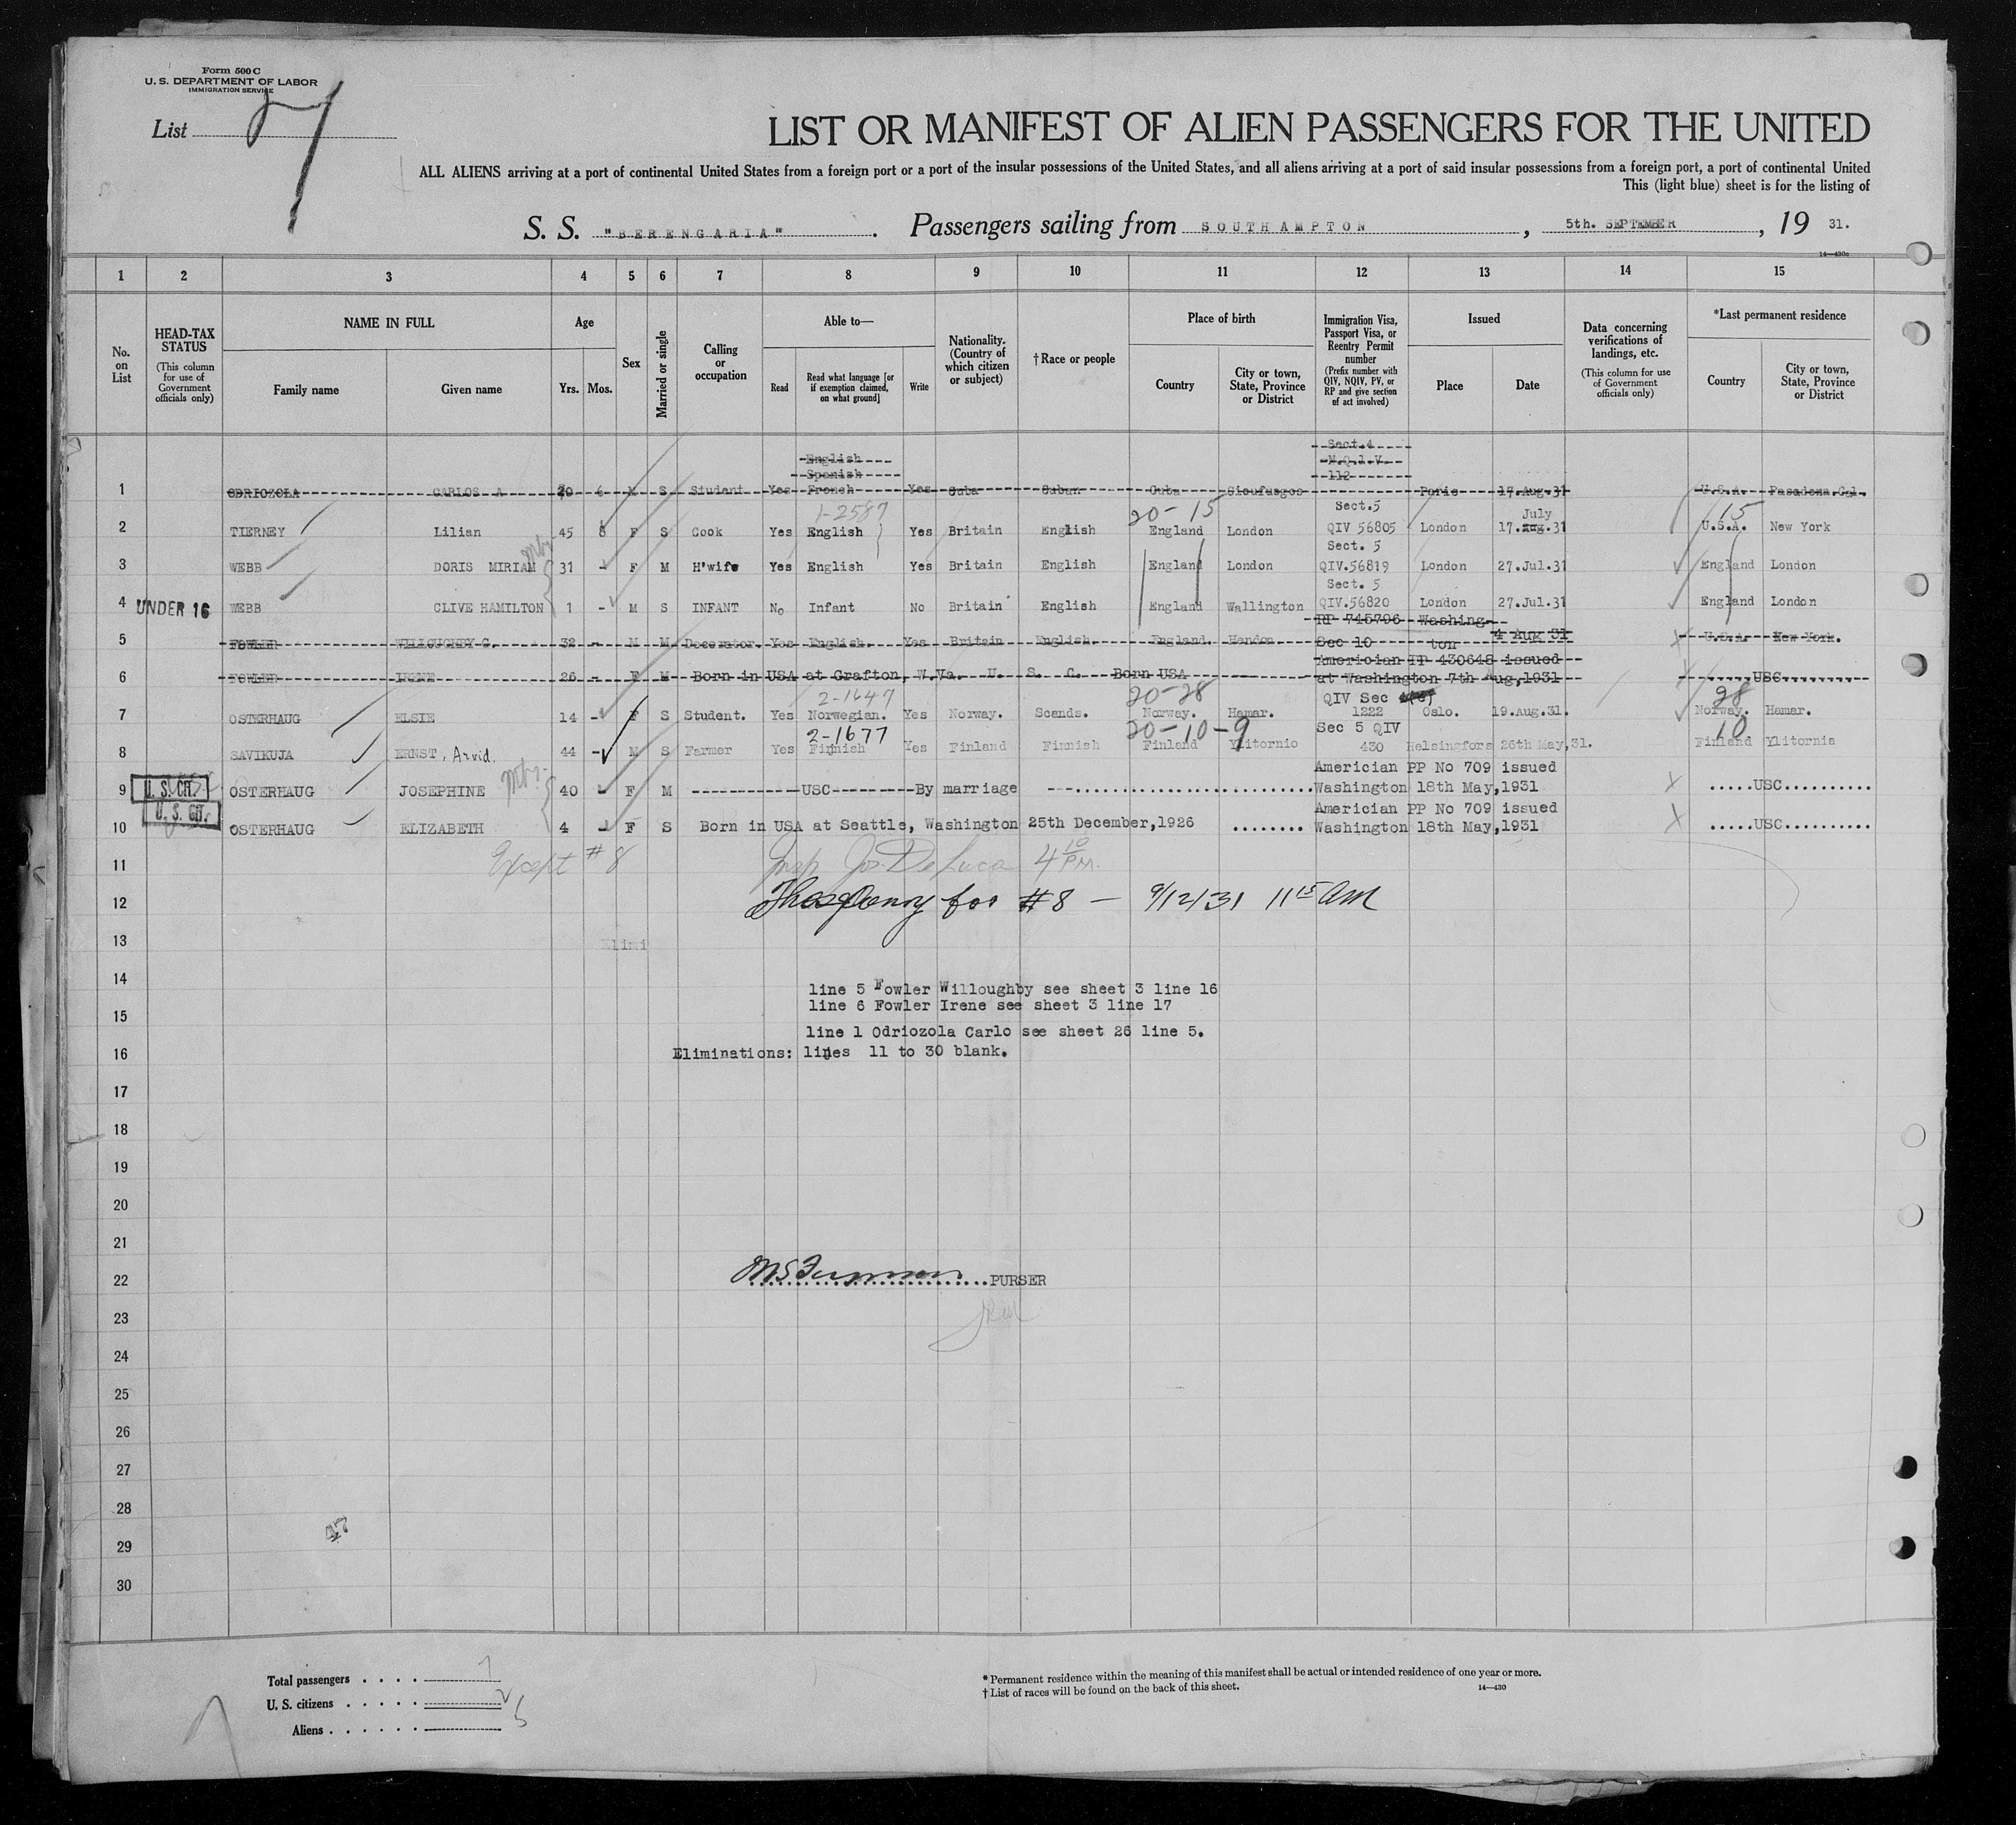 Form 500 C
U. S. DEPARTMENT OF LABOR
IMMIGRATION SERVICE
List 27
LIST OR MANIFEST OF ALIEN PASSENGERS FOR THE UNITED
ALL ALIENS arriving at a port of continental United States from a foreign port or a port of the insular possessions of the United States, and all aliens arriving at a port of said insular possessions from a foreign port, a port of continental United
This (light blue) sheet is for the listing of
S. S. "BERENGARIA" . Passengers sailing from SOUTHAMPTON , 5th. SEPTEMBER , 19 31.
14—430c
1 2 3 4 5 6 7 8 9 10 11 12 13 14 15
No. on List
HEAD-TAX STATUS
(This column for use of Government officials only)
NAME IN FULL
Family name
Given name
Age
Yrs.
Mos.
Sex
Married or single
Calling or occupation
Able to—
Read
Read what language [or if exemption claimed, on what ground]
Write
Nationality. (Country of which citizen or subject)
†Race or people
Place of birth
Country
City or town, State, Province or District
Immigration Visa, Passport Visa, or Reentry Permit number
(Prefix number with QIV, NQIV, PV, or RP and give section of act involved)
Issued
Place
Date
Data concerning verifications of landings, etc.
(This column for use of Government officials only)
*Last permanent residence
Country
City or town, State, Province or District
Sect.4
English N.Q.I.V.
Spanish 112
1 ODRIOZOLA CARLOS A 20 6 M S Student Yes French Yes Cuba Cuban Cuba Cienfuegos Paris 17.Aug.31 U.S.A. Pasadena.Cal.
1-2587 20-15 Sect.5 July 15
2 TIERNEY Lilian 45 8 F S Cook Yes English Yes Britain English England London QIV 56805 London 17.Aug.31 U.S.A. New York
Sect. 5
3 WEBB DORIS MIRIAM 31 - F M H'wife Yes English Yes Britain English England London QIV.56819 London 27.Jul.31 England London
Sect. 5
4 UNDER 16 WEBB CLIVE HAMILTON 1 - M S INFANT No Infant No Britain English England Wallington QIV.56820 London 27.Jul.31 England London
RP 745796 Washing-
5 FOWLER WILLOUGHBY C. 32 - M M Decorator. Yes English. Yes Britain English. England. Hendon Sec 10 ton 4 Aug 31 U.S.A. New York.
Americian PP 430648 issued
6 FOWLER IRENE 26 - F M Born in USA at Grafton, W.Va. U. S. C. Born USA at Washington 7th Aug,1931 USC
2-1647 20-28 QIV Sec 28
7 OSTERHAUG ELSIE 14 - F S Student. Yes Norwegian. Yes Norway. Scands. Norway. Hamar. 1222 Oslo. 19.Aug.31. Norway. Hamar.
2-1677 20-10-9 Sec 5 QIV 10
8 SAVIKUJA ERNST, Arvid. 44 - M S Farmer Yes Finnish Yes Finland Finnish Finland Ylitornio 430 Helsingfors 26th May,31. Finland Ylitornia
Americian PP No 709 issued
9 U. S. CH. OSTERHAUG JOSEPHINE 40 - F M ------------USC---------By marriage ---........................Washington 18th May,1931 .....USC..........
U. S. CH. Americian PP No 709 issued
10 OSTERHAUG ELIZABETH 4 - F S Born in USA at Seattle, Washington 25th December,1926 ........ Washington 18th May,1931 .....USC..........
11 Except #8 Insp Jos. DeLuca 4 10 PM.
12 for #8 — 9/12/31 11 15 AM
13 Elimi
14 line 5 Fowler Willoughby see sheet 3 line 16
line 6 Fowler Irene see sheet 3 line 17
15
line 1 Odriozola Carlo see sheet 26 line 5.
16 Eliminations: lines 11 to 30 blank.
17
18
19
20
21
22 PURSER
23
24
25
26
27
28
29
30
Total passengers . . . . 7
U. S. citizens . . . . . 2
Aliens . . . . . . 5
* Permanent residence within the meaning of this manifest shall be actual or intended residence of one year or more.
† List of races will be found on the back of this sheet. 14—430